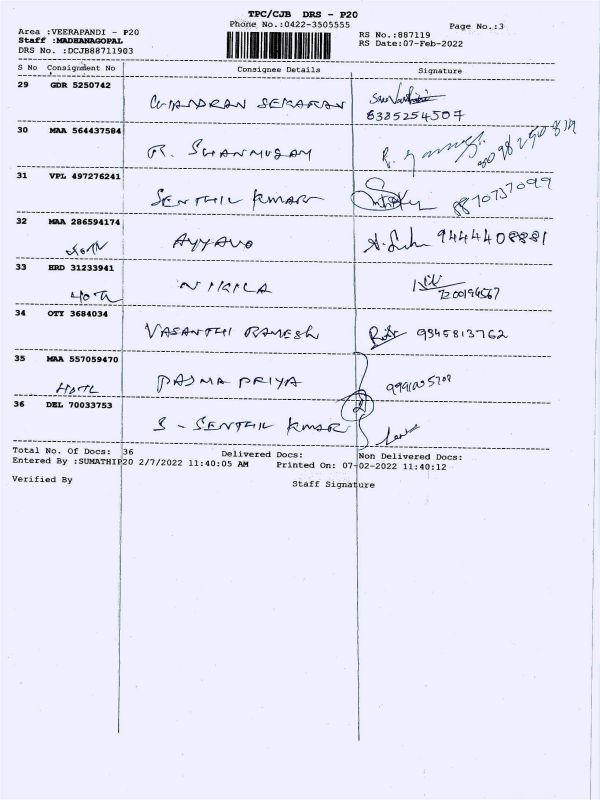 TPC/CJB DRS - P20
Phone No.:0422-3505555
Page No.:3
Area :VEERAPANDI - P20
Staff :MADHANAGOPAL
DRS No. :DCJB88711903
RS No.:887119
RS Date:07-Feb-2022
S No Consignment No Consignee Details Signature
29 GDR 5250742
CHANDRAN SEKARAN
6385254507
30 MAA 564437584
R. SHANMUGAM
31 VPL 497276241
SENTHIL KUMAR 8870737099
32 MAA 286594174
AYYAVO 9444408881
33 HRD 31233941
NIKILA
34 OTY 3684034
VASANTHI RAMESH 9345813762
35 MAA 557059470
PADMA PRIYA
36 DEL 70033753
S - SENTHIL KUMAR
Total No. Of Docs: 36 Delivered Docs: Non Delivered Docs:
Entered By :SUMATHIP20 2/7/2022 11:40:05 AM Printed On: 07-02-2022 11:40:12
Verified By Staff Signature